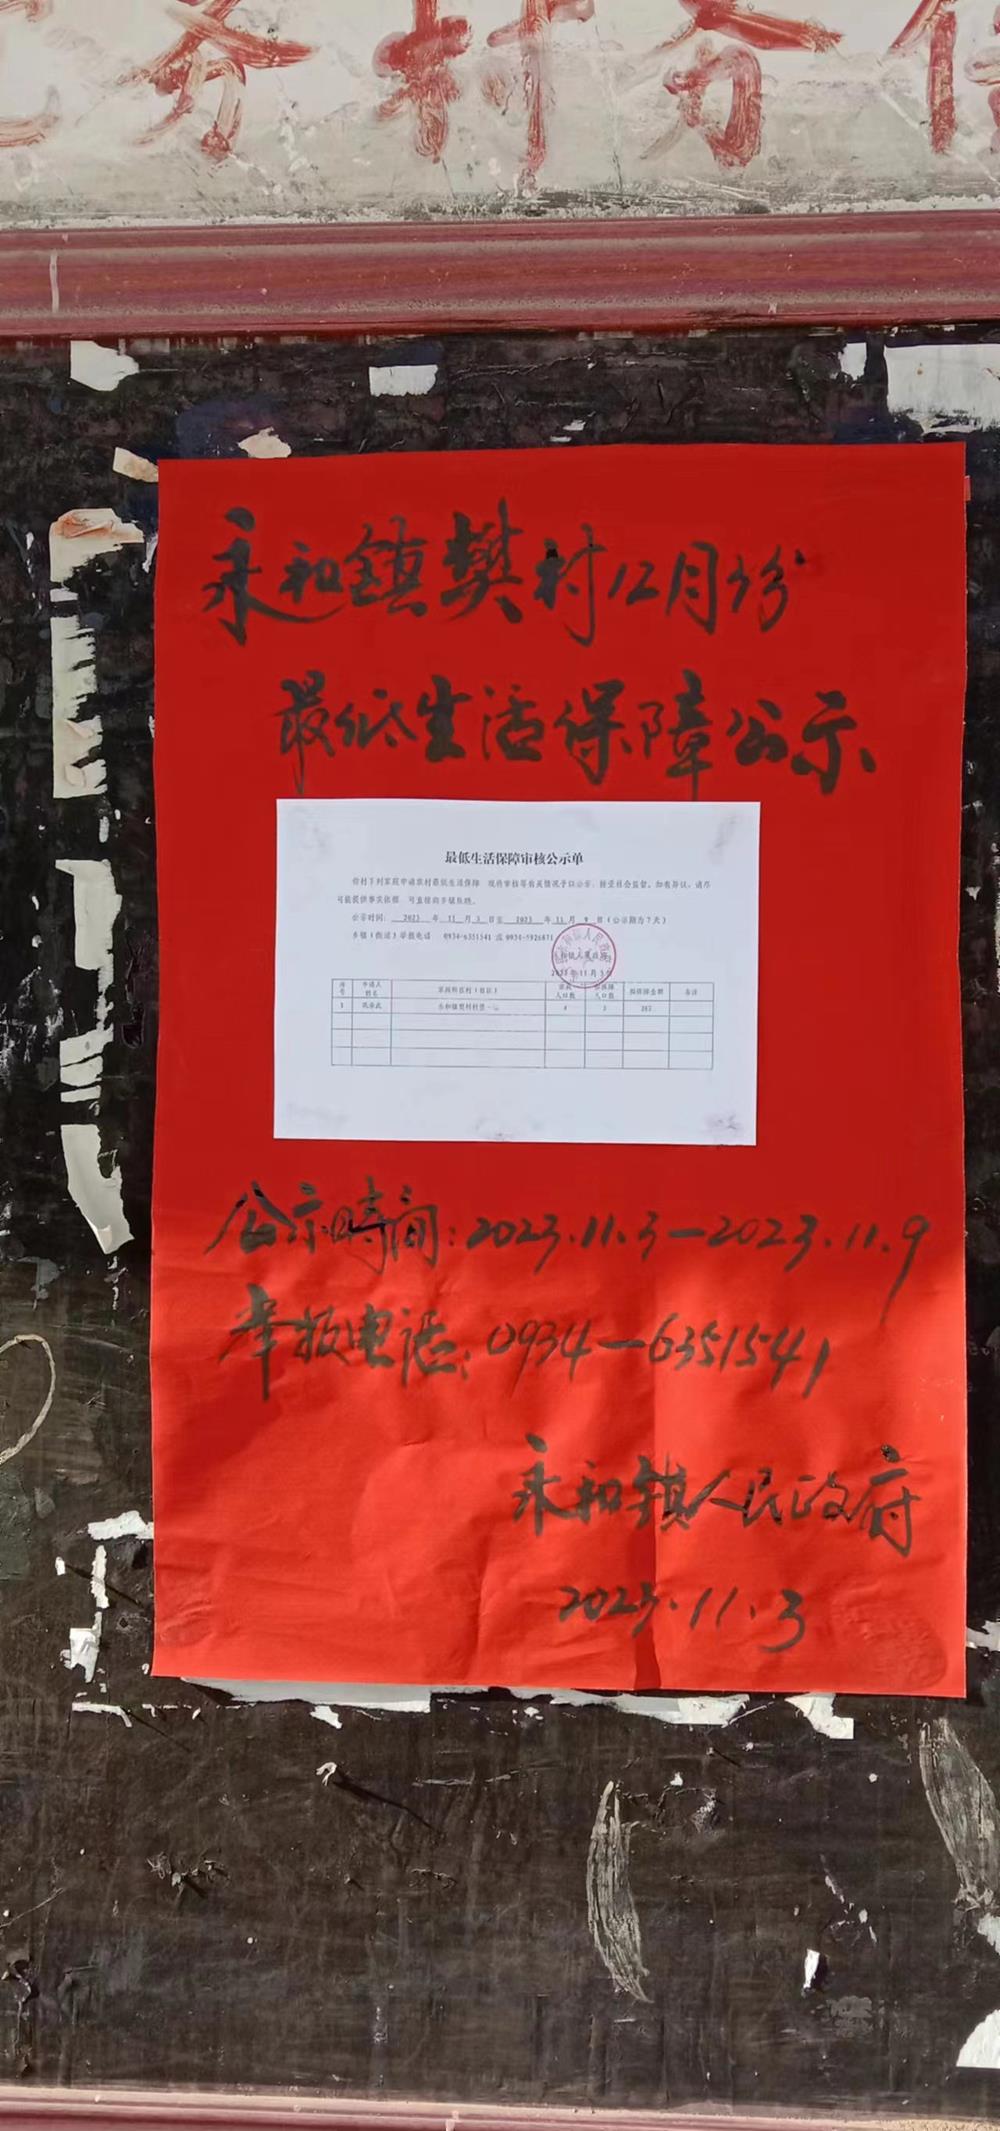 务村务信
永和镇樊村12月份
最低生活保障公示
最低生活保障审核公示单
你村下列家庭申请农村最低生活保障 现将审核等有关情况予以公示，接受社会监督。如有异议，请尽
可能提供事实依据 可直接向乡镇反映。
公示时间： 2023 年 11 月 3 日至 2023 年 11 月 9 日（公示期为7天）
乡镇（街道）举报电话 0934-6351541 或 0934-5926871
永和镇人民政府
2023年11月3日
序号 申请人姓名 家庭所在村（社区） 家庭人口数 拟保障人口数 拟保障金额 备注
1 永和镇樊村村 4
公示時间：2023.11.3—2023.11.9
举报电话：0934—6351541
永和镇人民政府
2023.11.3